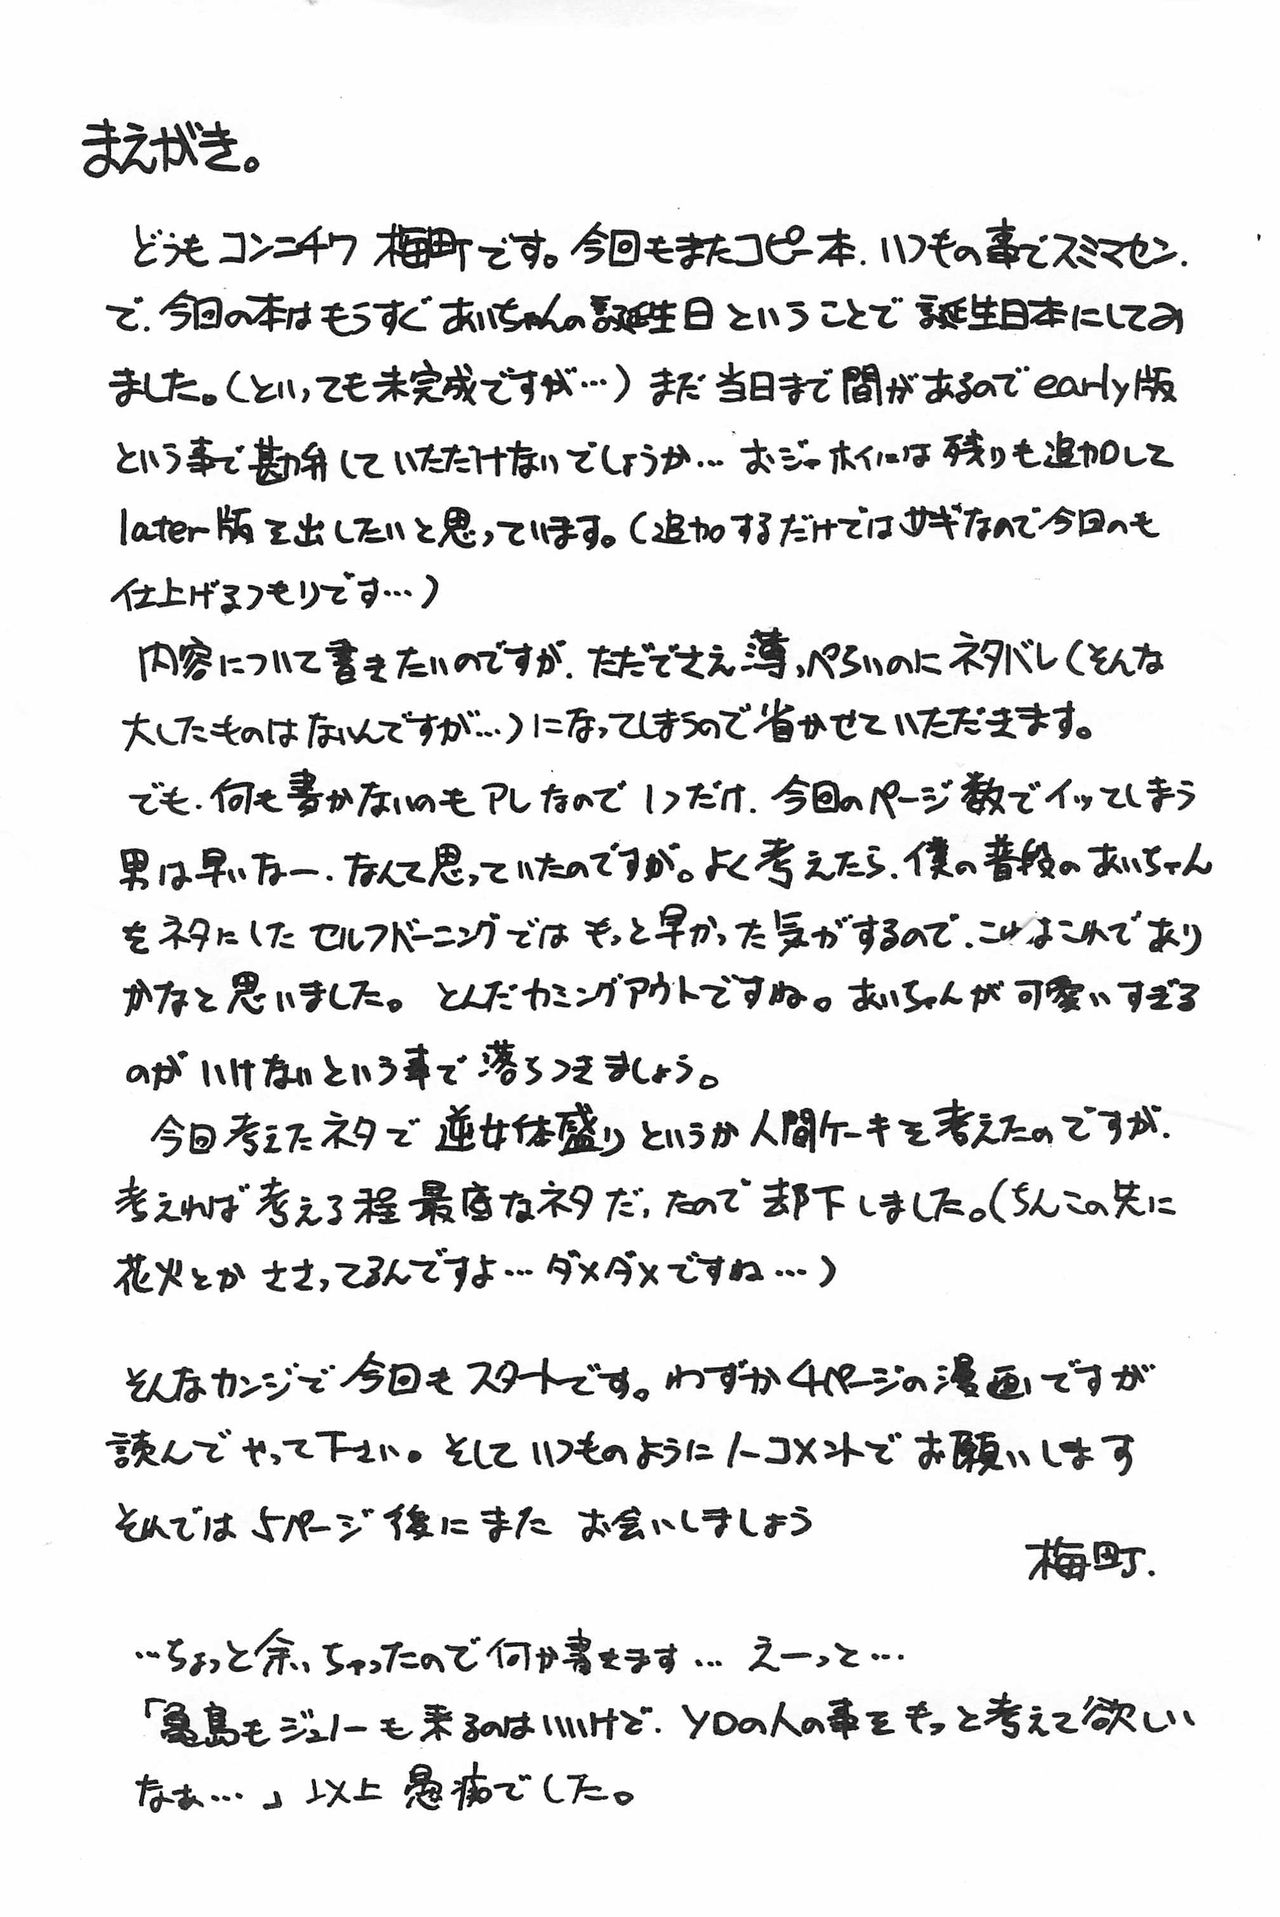 まえがき。
どうもコンニチワ 梅町です。今回もまたコピー本、いつもの事でスミマセン、
で、今回の本はもうすぐあいちゃんの誕生日ということで誕生日本にしてみ
ました。(といっても未完成ですが…)まだ当日まで間があるのでearly版
という事で勘弁していただけないでしょうか…おジャホイには残りも追加して
later版を出したいと思っています。(追加するだけではサギなので今回のも
仕上げるつもりです…)
内容について書きたいのですが、ただでさえ薄っぺらいのにネタバレ(そんな
大したものはないんですが…)になってしまうので省かせていただきます。
でも、何も書かないのもアレなので1つだけ、今回のページ数でイッてしまう
男は早いなー、なんて思っていたのですが。よく考えたら、僕の普段のあいちゃん
をネタにしたセルフバーニングではもっと早かった気がするので、これはこれであり
かなと思いました。とんだカミングアウトですね。あいちゃんが可愛いすぎる
のがいけないという事で落ちつきましょう。
今回考えたネタで逆女体盛りというか人間ケーキを考えたのですが、
考えれば考える程最底なネタだったので却下しました。(ちんこの先に
花火とかささってるんですよ…ダメダメですね…)
そんなカンジで今回もスタートです。わずか4ページの漫画ですが
読んでやって下さい。そしていつものようにノーコメントでお願いします
それでは5ページ後にまたお会いしましょう
梅町.
…ちょっと余っちゃったので何か書きます… えーっと…
「亀島もジュノーも来るのはいいけど、YDの人の事をもっと考えて欲しい
なぁ…」以上 愚痴でした。